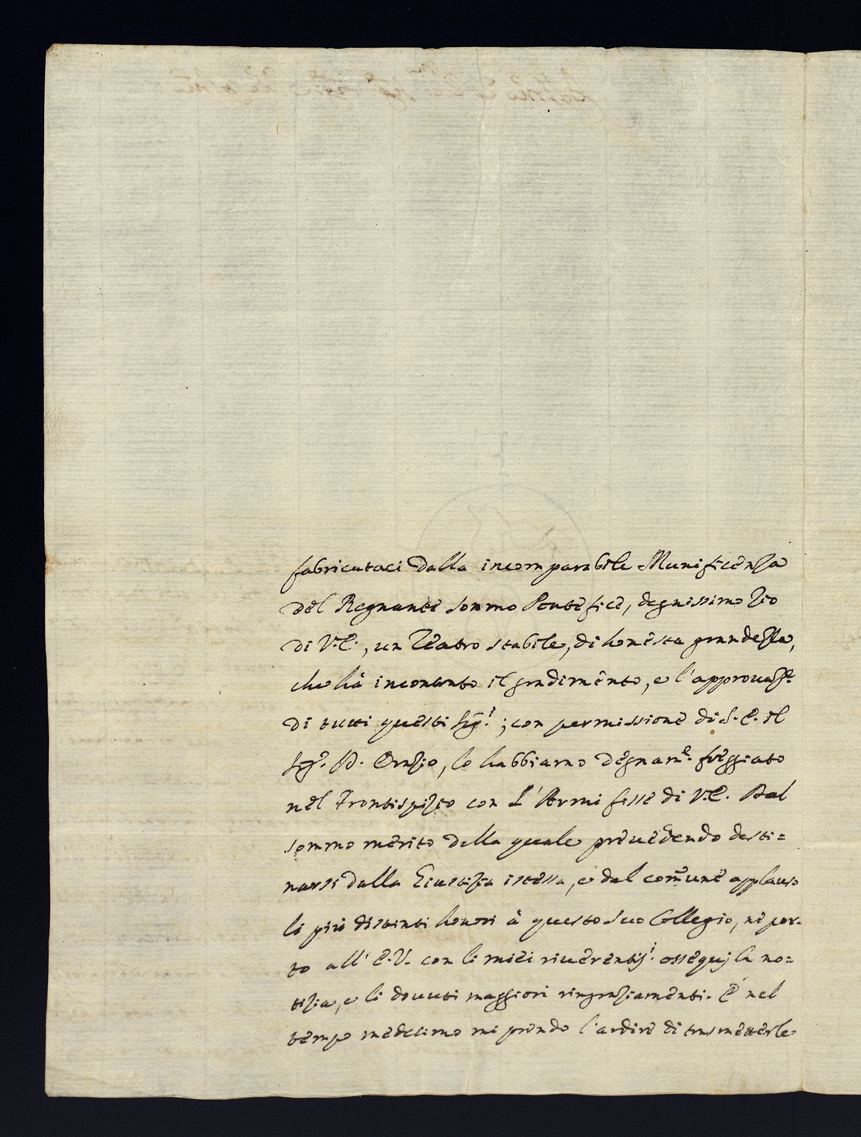 fabricataci dalla incomparabile Munificenza
del Regnante sommo Pontefice, degnissimo Zio
di V.E., un Teatro stabile, di honesta grandezza,
che hà incontrato il gradimento, e l'approvaz.e
di tutti questi Sig.i; con permissione di S.E. il
Sig.r D. Orazio, lo habbiamo degnam.e freggiato
nel Frontispizio con L'Armi fisse di V.E. Dal
sommo merito della quale prevedendo desti=
narsi dalla Giustizia istessa, e dal comune applauso
li più distinti honori à questo suo Collegio, ne por-
to all'E.V. con li miei riverentis.i ossequij la no=
tizia, e li dovuti maggiori ringraziamenti. E nel
tempo medesimo mi prendo l'ardire di trasmetterle